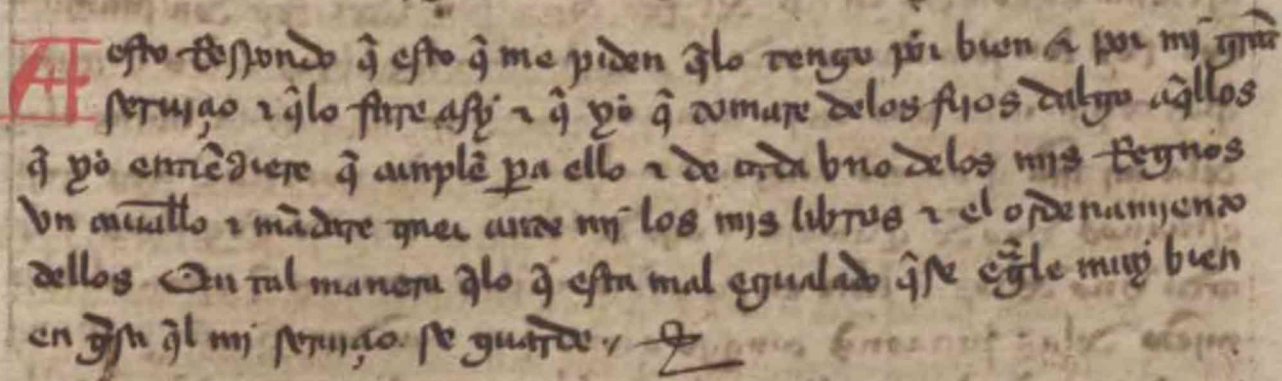 A esto Respondo q̃ esto q̃ me piden q̃lo tengo por bien & por mj grãt
seruiçio τ q̃lo fare asy τ q̃ yo q̃ tomare delos fijos dalgo aq̃llos
q̃ yo entiẽdiere q̃ cunplẽ pa ello τ de cada vno delos mis Regnos
vn cauallo τ mãdare traer ante mj los mjs libros τ el ordenamjento
dellos En tal manera q̃lo q̃ esta mal egualado q̃se egle muy bien
en gsa q̃l mj seruiçio se guarde